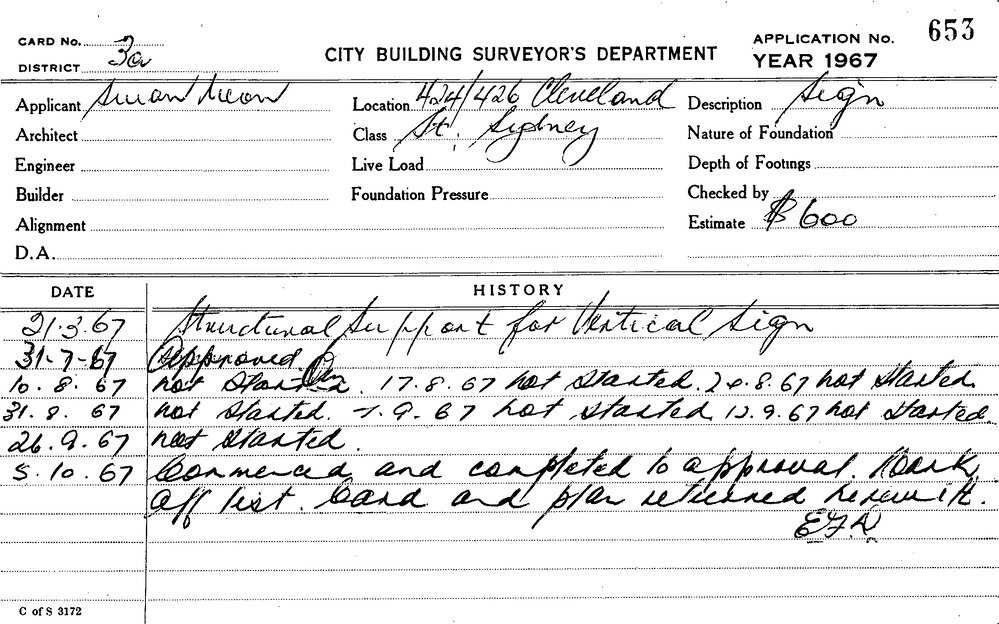 CARD No.
DISTRICT 3a
CITY BUILDING SURVEYOR'S DEPARTMENT
APPLICATION No. 653
YEAR 1967
Applicant Swan Neon
Location 424/426 Cleveland
Description Sign
Architect
Class St. Sydney
Nature of Foundation
Engineer
Live Load
Depth of Footings
Builder
Foundation Pressure
Checked by
Alignment
Estimate $600
D.A.
DATE HISTORY
21.3.67 Structural Support for Vertical Sign
31-7-67 Approved
10.8.67 not started. 17.8.67 not started. 24.8.67 not started.
31.8.67 not started. 9.67 not started 9.67 not started
26.9.67 not started.
5.10.67 Commenced and completed to approval. Mark
off list. Card and plan returned herewith.
C of S 3172